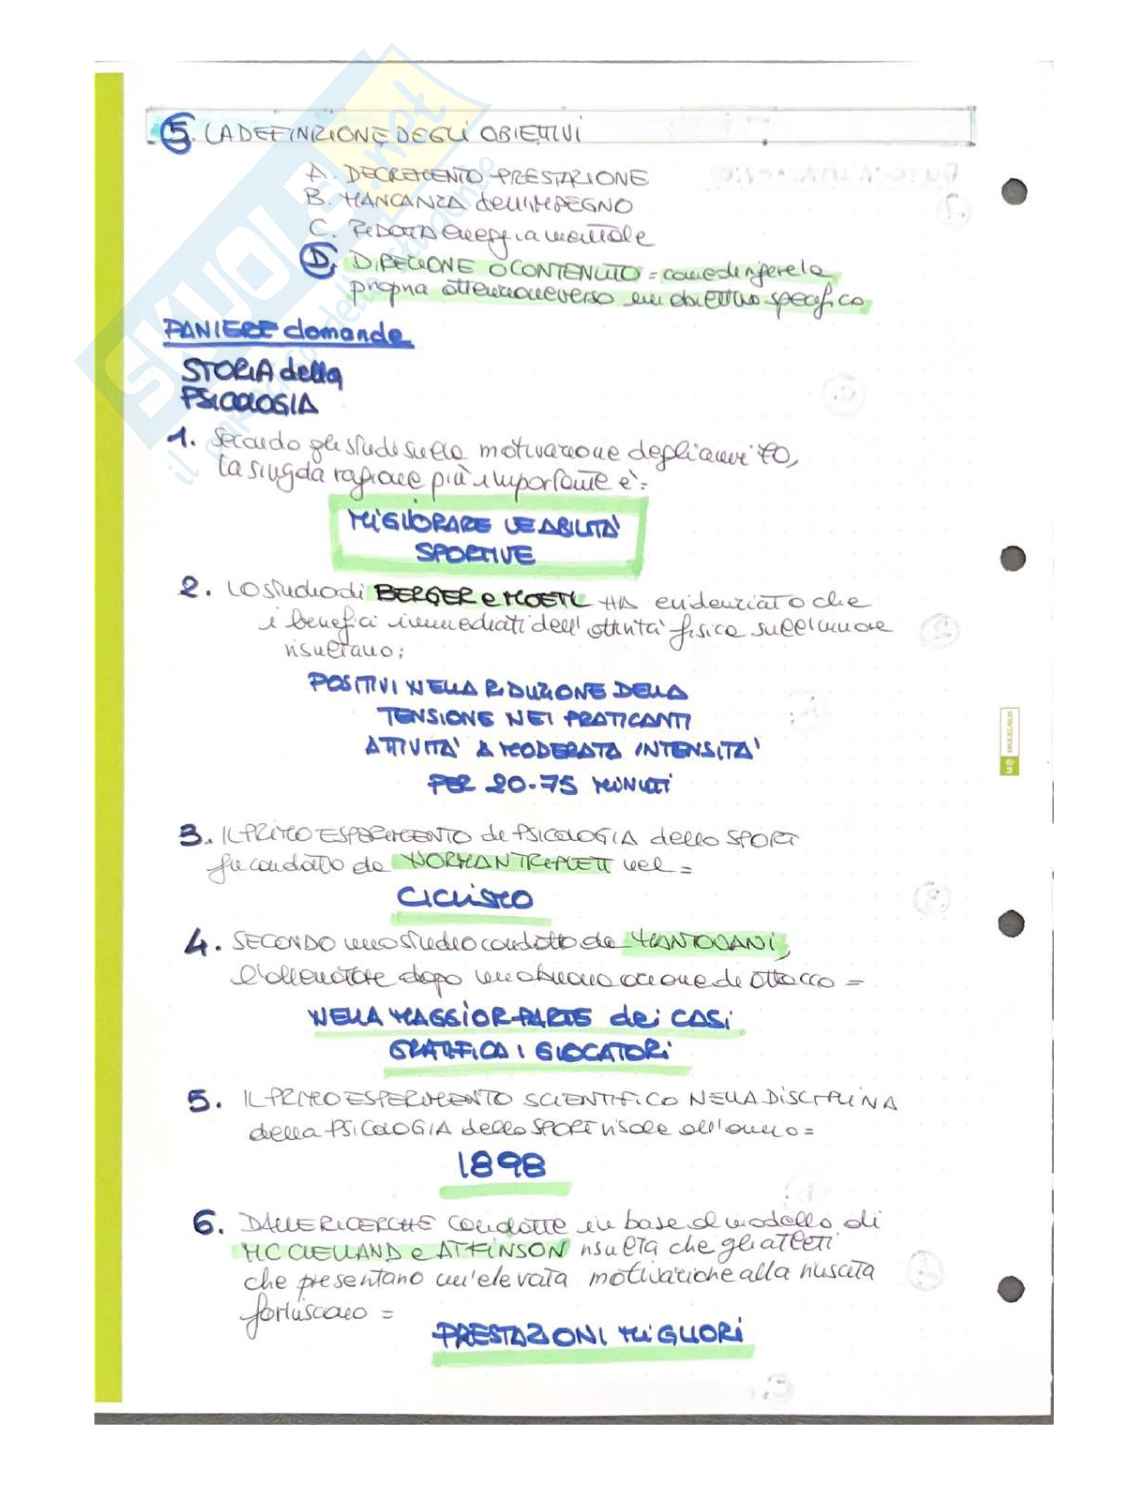 5. LA DEFINIZIONE DEGLI OBIETTIVI
A. DECREMENTO PRESTAZIONE
B. MANCANZA dell'IMPEGNO
C. RIDOTTA energia mentale
D. DIREZIONE O CONTENUTO = come dirigere la
propria attenzione verso un obiettivo specifico
PANIERE domande
STORIA della
PSICOLOGIA
1. Secondo gli studi sulla motivazione degli anni 70,
la singola ragione più importante è:
MIGLIORARE LE ABILITÀ
SPORTIVE
2. LO studio di BERGER e MOETL HA evidenziato che
i benefici immediati dell'attività fisica sull'umore
risultano:
POSITIVI NELLA RIDUZIONE DELLA
TENSIONE NEI PRATICANTI
ATTIVITA' A MODERATA INTENSITA'
PER 20-75 MINUTI
3. IL PRIMO ESPERIMENTO di PSICOLOGIA dello SPORT
fu condotto da NORMAN TRIPLETT nel =
CICLISMO
4. SECONDO uno studio condotto da MANTOVANI,
l'allenatore dopo una buona azione di attacco =
NELLA MAGGIOR PARTE dei CASI
GRATIFICA I GIOCATORI
5. IL PRIMO ESPERIMENTO SCIENTIFICO NELLA DISCIPLINA
della PSICOLOGIA dello SPORT risale all'anno =
1898
6. DALLE RICERCHE condotte in base al modello di
MC CLELLAND e ATKINSON risulta che gli atleti
che presentano un'elevata motivazione alla riuscita
forniscano =
PRESTAZIONI MIGLIORI
SKUOLA.net